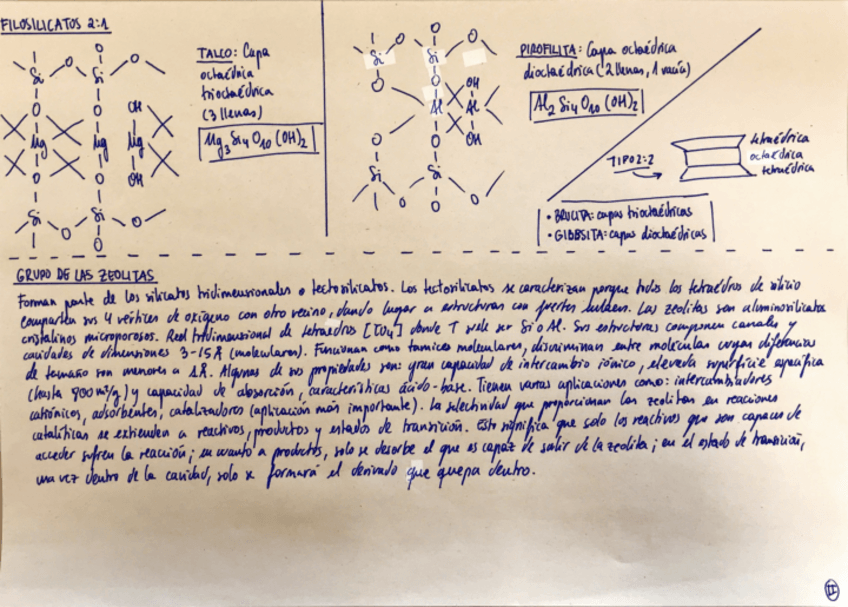 FILOSILICATOS 2:1
TALCO: Capa
octaédrica
trioctaédrica
(3 llenas)
Mg3Si4O10(OH)2
PIROFILITA: Capa octaédrica
dioctaédrica (2 llenas, 1 vacía)
Al2Si4O10(OH)2
TIPO 2:2
tetraédrica
octaédrica
tetraédrica
• BRUCITA: capas trioctaédricas
• GIBBSITA: capas dioctaédricas
GRUPO DE LAS ZEOLITAS
Forman parte de los silicatos tridimensionales o tectosilicatos. Los tectosilicatos se caracterizan porque todos los tetraedros de silicio
comparten sus 4 vértices de oxígeno con otro vecino, dando lugar a estructuras con fuertes enlaces. Las zeolitas son aluminosilicatos
cristalinos microporosos. Red tridimensional de tetraedros [TO4] donde T suele ser Si o Al. Sus estructuras componen canales y
cavidades de dimensiones 3-15Å (moleculares). Funcionan como tamices moleculares, discriminan entre moléculas cuyas diferencias
de tamaño son menores a 1Å. Algunas de sus propiedades son: gran capacidad de intercambio iónico, elevada superficie específica
(hasta 900 m²/g) y capacidad de absorción, características ácido-base. Tienen varias aplicaciones como: intercambiadores
catiónicos, adsorbentes, catalizadores (aplicación más importante). La selectividad que proporcionan las zeolitas en reacciones
catalíticas se extienden a reactivos, productos y estados de transición. Esto significa que solo los reactivos que son capaces de
acceder sufren la reacción; en cuanto a productos, solo se desorbe el que es capaz de salir de la zeolita; en el estado de transición,
una vez dentro de la cavidad, solo se formará el derivado que quepa dentro.
II